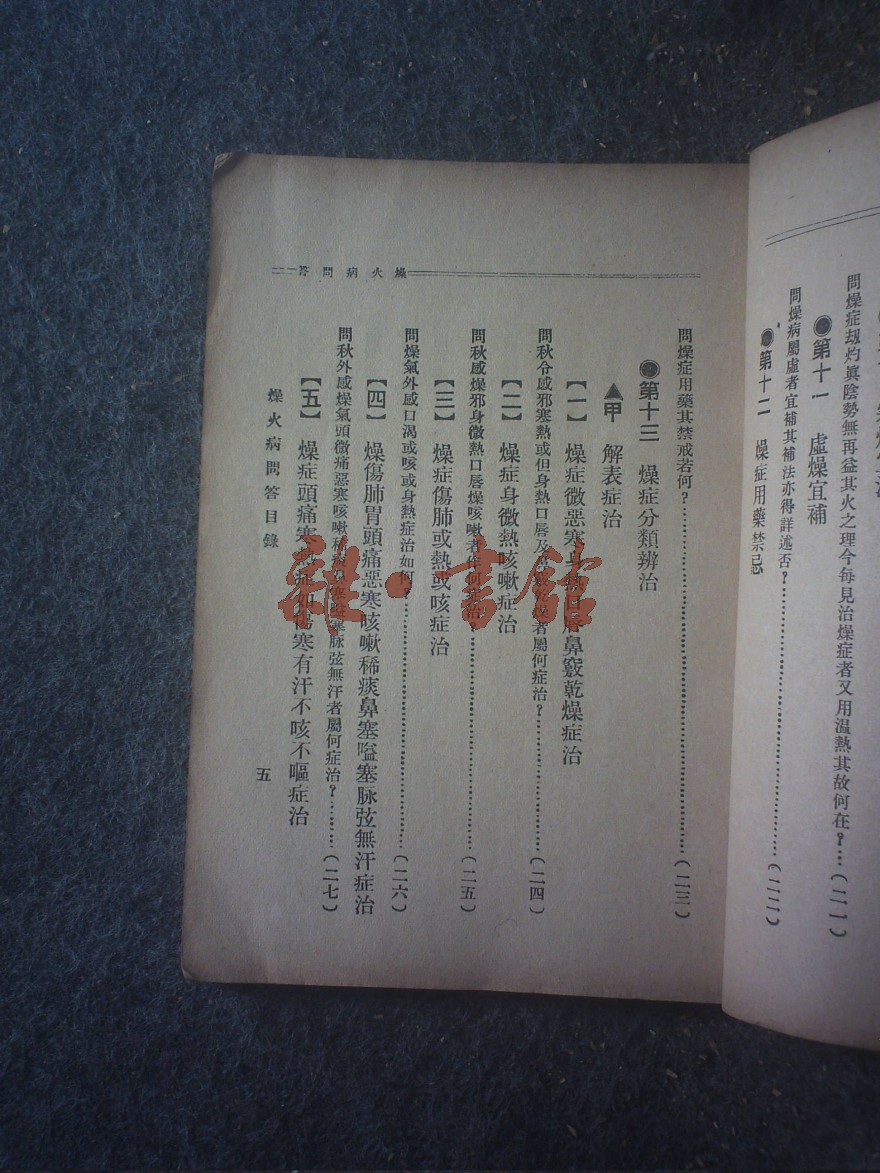 問燥症刼灼眞陰勢無再益其火之理今每見治燥症者又用温熱其故何在？…(二一)
●第十一　虛燥宜補
問燥病屬虛者宜補其補法亦得詳述否？…(二二)
●第十二　燥症用藥禁忌
燥火病問答
問燥症用藥其禁戒若何？…(二三)
●第十三　燥症分類辨治
▲甲　解表症治
【一】　燥症微惡寒身熱口唇鼻竅乾燥症治
問秋令感邪寒熱或但身熱口唇及鼻竅乾燥者屬何症治？…(二四)
【二】　燥症身微熱咳嗽症治
問秋感燥邪身微熱口唇燥咳嗽者作何症治？…(二五)
【三】　燥症傷肺或熱或咳症治
問燥氣外感口渴或咳或身熱症治如何？…(二六)
【四】　燥傷肺胃頭痛惡寒咳嗽稀痰鼻塞嗌塞脉弦無汗症治
問秋外感燥氣頭微痛惡寒咳嗽稀痰鼻塞嗌塞脉弦無汗者屬何症治？…(二七)
【五】　燥症頭痛寒熱症如傷寒有汗不咳不嘔症治
燥火病問答目錄
五
雜·書館